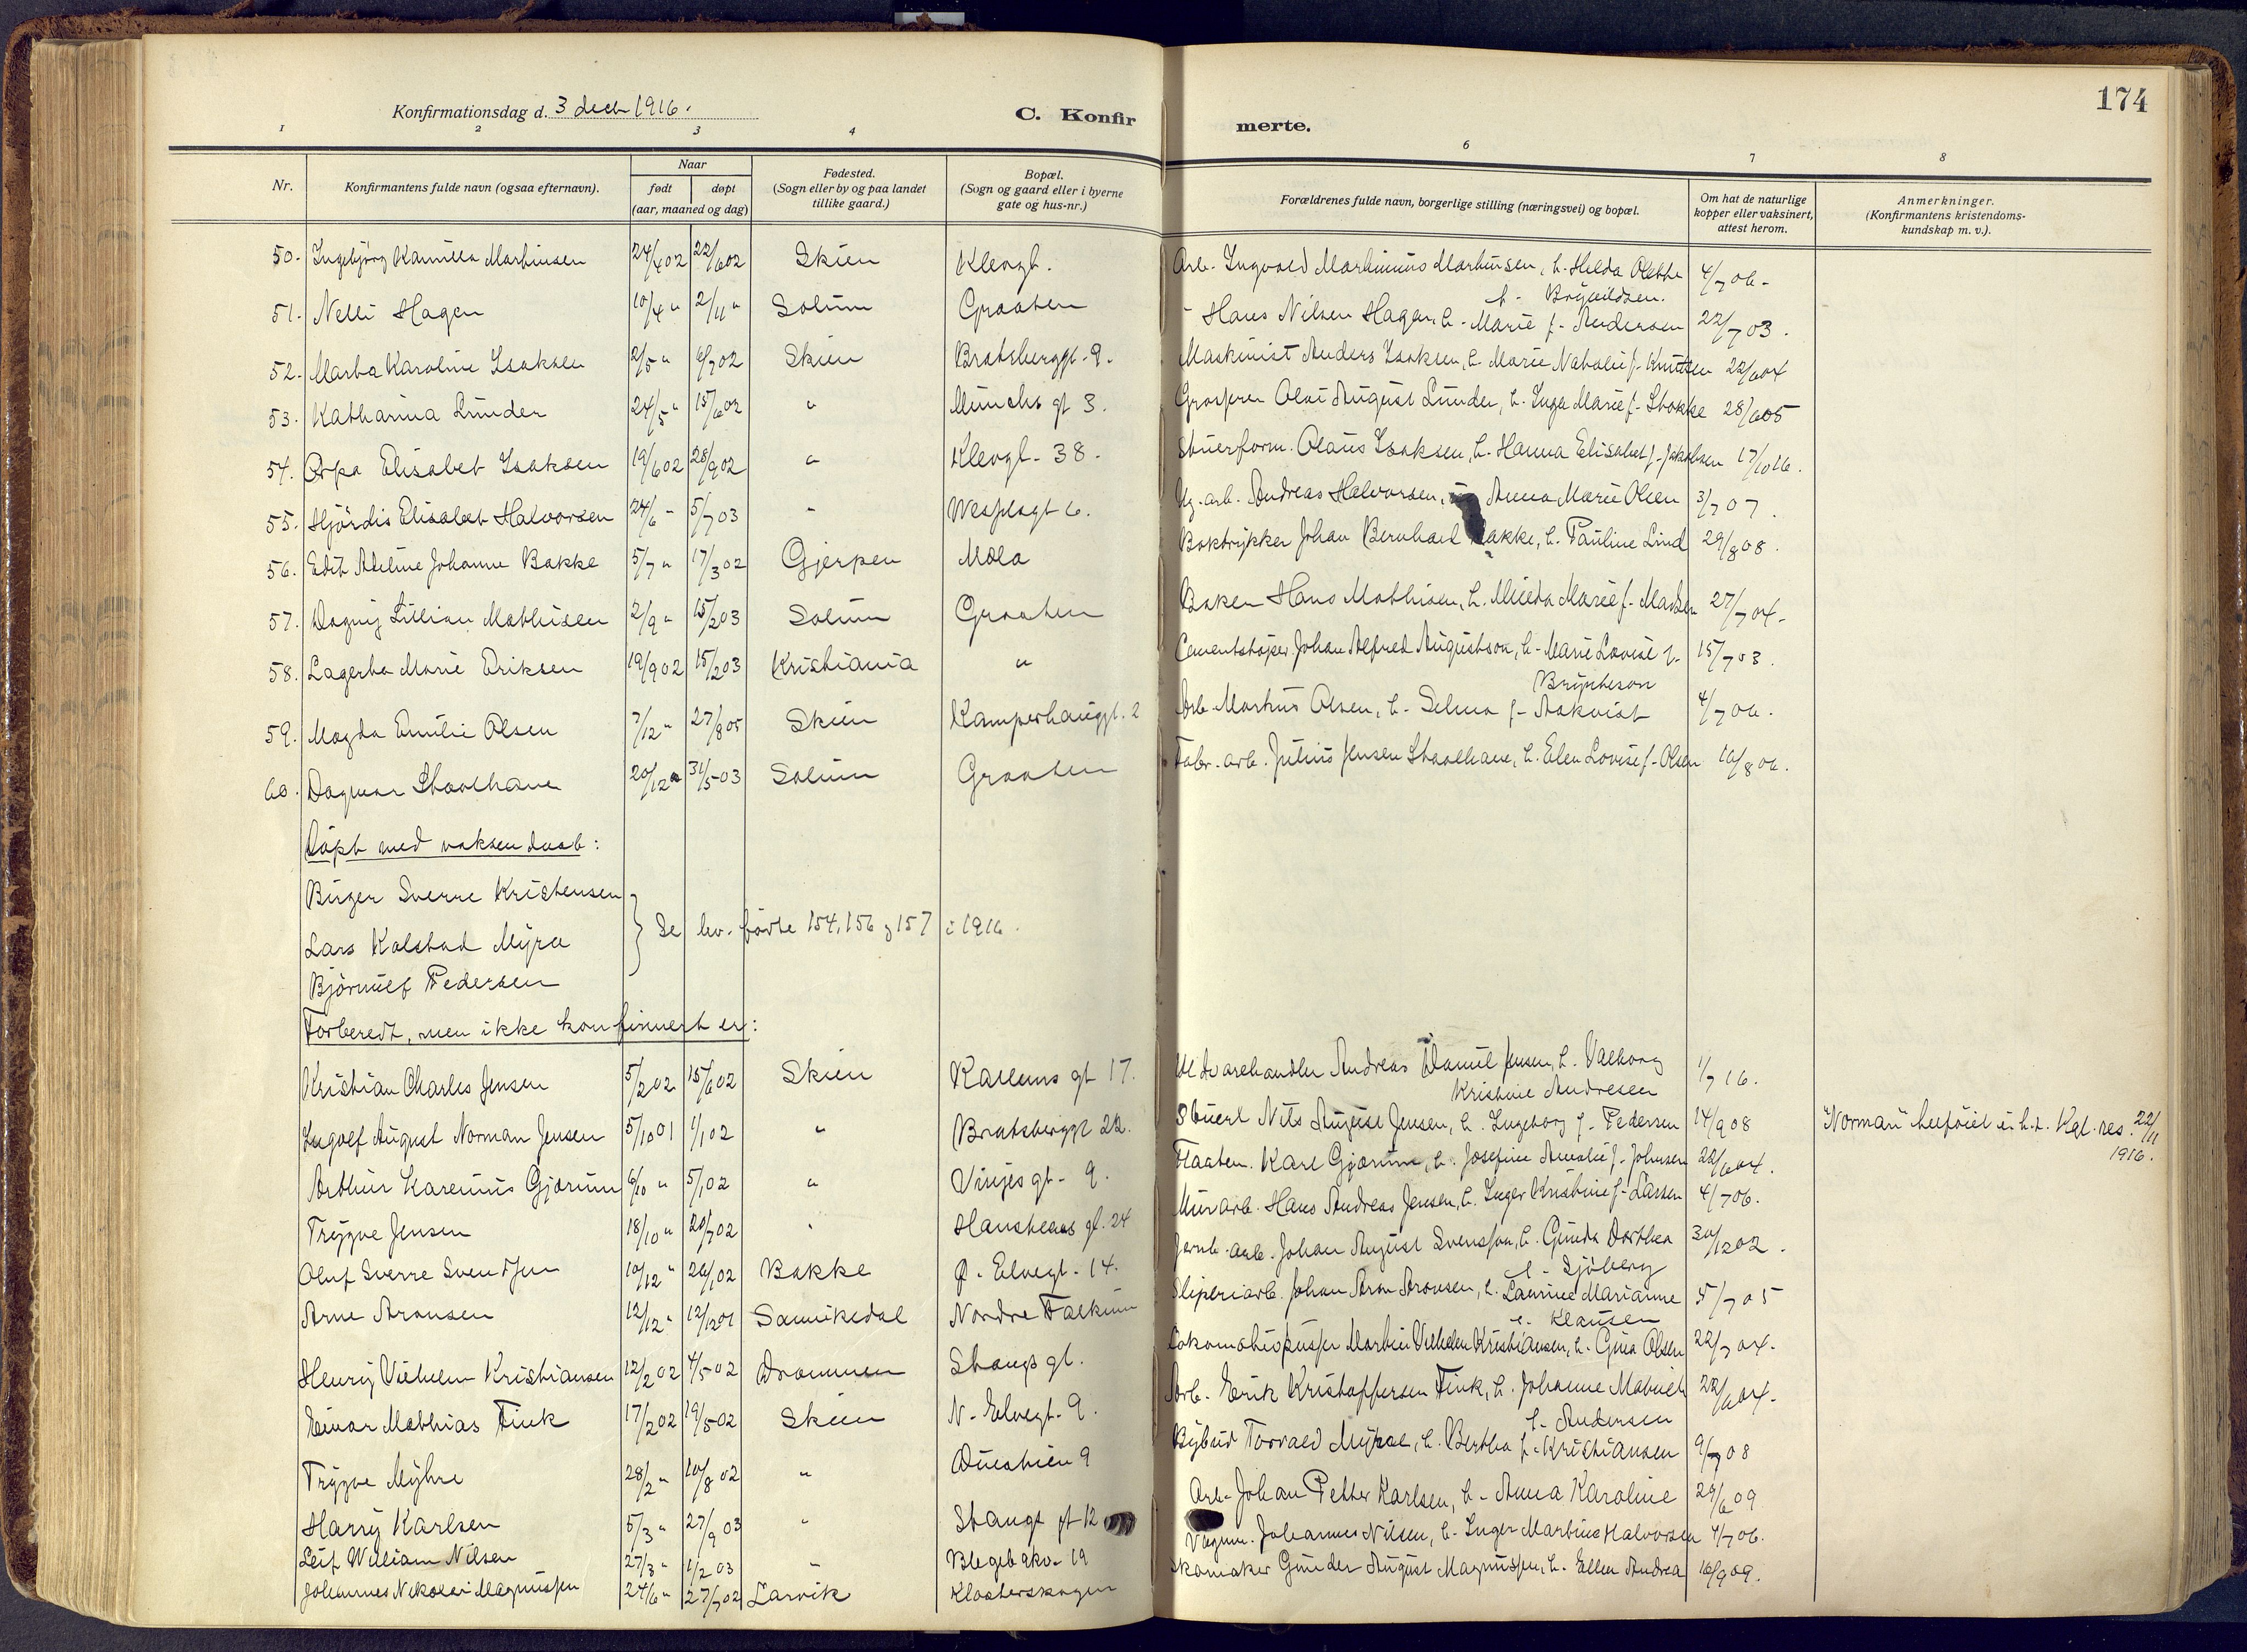 174
Konfirmationsdag d. 3 decb 1916.
C. Konfir
merte.
1 2 3 4
6 7 8
Nr.
Konfirmantens fulde navn (ogsaa efternavn).
Naar
født døpt
(aar, maaned og dag)
Fødested.
(Sogn eller by og paa landet
tillike gaard.)
Bopæl.
(Sogn og gaard eller i byerne
gate og hus-nr.)
Forældrenes fulde navn, borgerlige stilling (næringsvei) og bopæl.
Om hat de naturlige
kopper eller vaksinert,
attest herom.
Anmerkninger.
(Konfirmantens kristendoms-
kundskap m. v.).
50. Ingebjörg Kamilla Martinsen 24/4 02 22/6 02 Skien Klevgt. Arb. Ingvald Martinius Martinsen, h. Hilda Olette 4/7 06.
f. Brynildsen.
51. Nelli Hagen 10/4 " 2/11 " Solum Graaten - Hans Nilsen Hagen, h. Marie f. Andersen 22/7 03.
52. Marta Karoline Isaksen 2/5 " 6/7 02 Skien Bratsberggt. 9. Maskinist Anders Isaksen, h. Marie Natalie f. Knutsen 22/6 04
53. Katharina Lunder 24/5 " 15/6 02 " Munchs gt 3. Grosserer Olai August Lunder, h. Inga Marie f. Stokke 28/6 05
54. Elisabet Isaksen 19/6 02 28/9 02 " Klevgt. 38. Stuerform. Olaus Isaksen, h. Hanna Elisabet f. Jakobsen 17/10 16.
55. Hjördis Elisabet Halvorsen 24/6 " 5/7 03 " Wesselsgt 6. Ug. arb. Andreas Halvorsen, Anna Marie Olsen 3/7 07.
56. Edit Adeline Johanne Bakke 5/7 " 17/3 02 Gjerpen Mæla Boktrykker Johan Bernhard Bakke, h. Pauline Lind 29/8 08.
57. Dagny Lillian Mathisen 2/9 " 15/2 03 Solum Graaten Baker Hans Mathisen, h. Milda Marie f. Madsen 27/7 04.
58. Lagerta Marie Eriksen 19/9 02 15/2 03 Kristiania " Cementstøper Johan Alfred Augustson, h. Marie Lovise f. 15/7 03.
Brynteson
59. Magda Emilie Olsen 7/12 " 27/8 05 Skien Kamperhauggt. 2 Arb. Markus Olsen, h. Selma f. Aakvist 4/7 06.
60. Dagmar Staalhane 20/12 " 31/5 03 Solum Graaten Fabr. arb. Julius Jensen Staalhane, h. Elen Lovise f. Olsen 16/8 06.
Døpt med voksen daab:
Birger Sverre Kristensen
Lars Kolstad Myra } Se lev. fødte 154, 156 og 157 i 1916.
Bjørnulf Pedersen
Forberedt, men ikke konfirmert er:
Kristian Charles Jensen 5/2 02 15/6 02 Skien Kallums gt 17. Vedvarehandler Andreas Daniel Jensen, h. Valborg 1/7 16.
Kristine Andresen
Ingolf August Norman Jensen 5/10 01 1/1 02 " Bratsberggt 22. Stuert Nils August Jensen, h. Ingeborg f. Pedersen 14/9 08 "Norman" tilføiet i h.t. Kgl. res. 22/11
1916.
Arthur Karenius Gjærum 6/10 " 5/1 02 " Vinjes gt. 9. Fløter. Karl Gjærum, h. Josefine Amalie f. Johnsen 22/6 04.
Trygve Jensen 18/10 " 20/7 02 " Hansteens gt. 24 Mur arb. Hans Andreas Jensen, h. Inger Kristine f. Larsen 4/7 06.
Oluf Sverre Svendsen 10/12 " 26/1 02 Bakke Ø. Elvegt. 14. Jernb. arb. Johan August Svensson, h. Gunda Dorthea 30/12 02.
f. Sjöberg
Arne Aronsen 12/12 " 12/12 01 Sannikedal Nordre Falkum Sliperiarb. Johan Aron Aronsen, h. Laurine Marianne 5/7 05
f. Klausen
Henry Vilhelm Kristiansen 12/2 02 4/5 02 Drammen Stangs gt. Lokomotivpusser Martin Vilhelm Kristiansen, h. Gina Olsen 22/7 04.
Einar Mathias Fink 17/2 02 19/5 02 Skien N. Elvegt. 9. Arb. Erik Kristoffersen Fink, h. Johanne Matilde 22/6 04.
f. Andersen
Trygve Myhre 28/2 " 10/8 02 " Duestien 9 Bybud Torvald Myhre, h. Bertha f. Kristiansen 9/7 08
Harry Karlsen 5/3 " 27/9 03 " Stangs gt 12 Arb. Johan Petter Karlsen, h. Anna Karoline 29/6 09
Leif William Nilsen 27/3 " 1/2 03 " Blegebakv. 19 Vognm. Johannes Nilsen, h. Inger Martine Halvorsen 4/7 06.
Johannes Nikolai Magnussen 24/6 " 27/7 02 Larvik Klosterskogen Skomaker Gunder August Magnussen, h. Ellen Andrea 16/9 09.